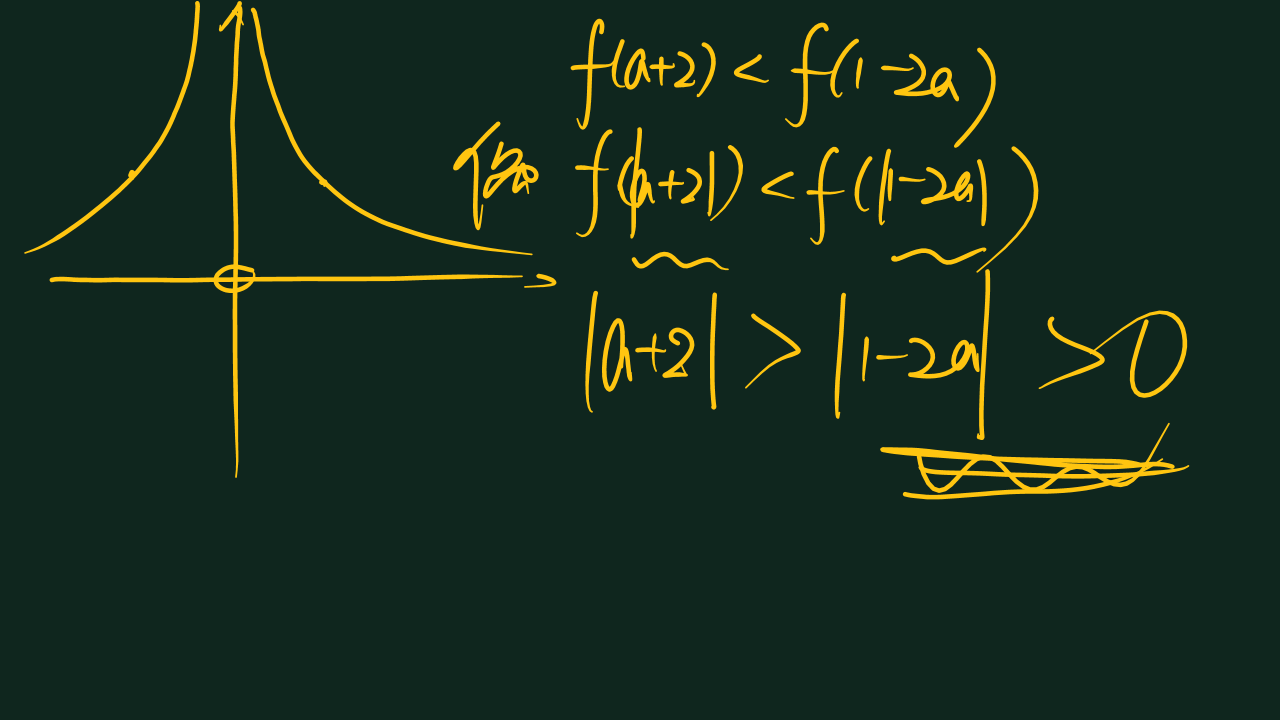 f(a+2) < f(1-2a)
偶 f(|a+2|) < f(|1-2a|)
|a+2| > |1-2a| > 0